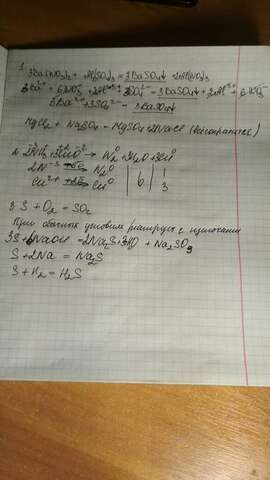 1.
3Ba(NO₃)₂ + Al₂(SO₄)₃ = 3BaSO₄↓ + 2Al(NO₃)₃
3Ba²⁺ + 6NO₃⁻ + 2Al³⁺ + 3SO₄²⁻ = 3BaSO₄↓ + 2Al³⁺ + 6NO₃⁻
3Ba²⁺ + 3SO₄²⁻ = 3BaSO₄↓
MgCl₂ + Na₂SO₄ = MgSO₄ + 2NaCl
2. 2NH₃ + 3CuO → N₂⁰ + 3H₂O + 3Cu⁰
2N⁻³ → N₂⁰ | 6 | 1
Cu²⁺ → Cu⁰ | 3
3 S + O₂ = SO₂
При обычных условиях реагирует с щелочами
3S + 6NaOH = 2Na₂S + 3H₂O + Na₂SO₃
S + 2Na = Na₂S
S + H₂ = H₂S